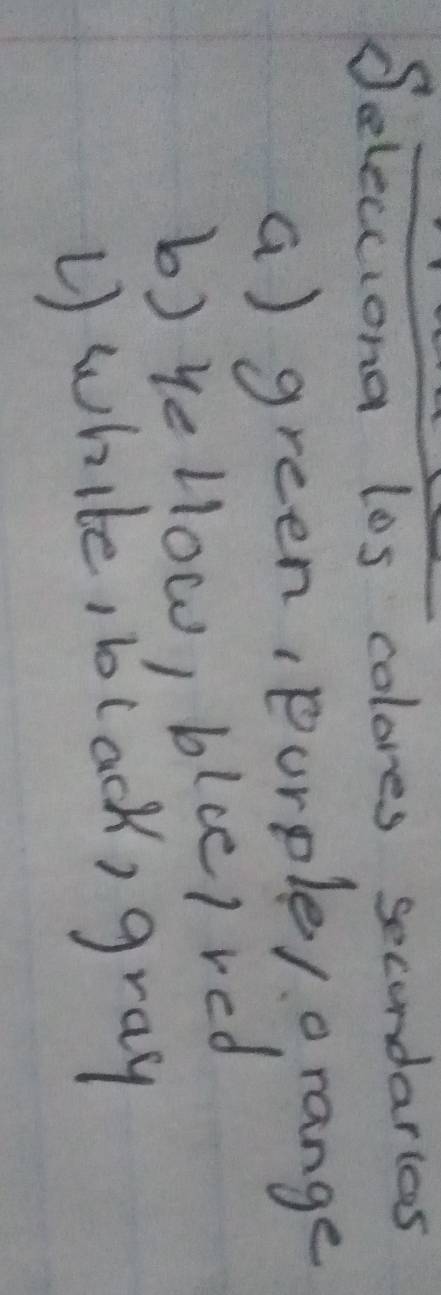 Selecciona los colores secundarios
a) green, purple, orange
b) yellow, blue, red
c) white, black, gray